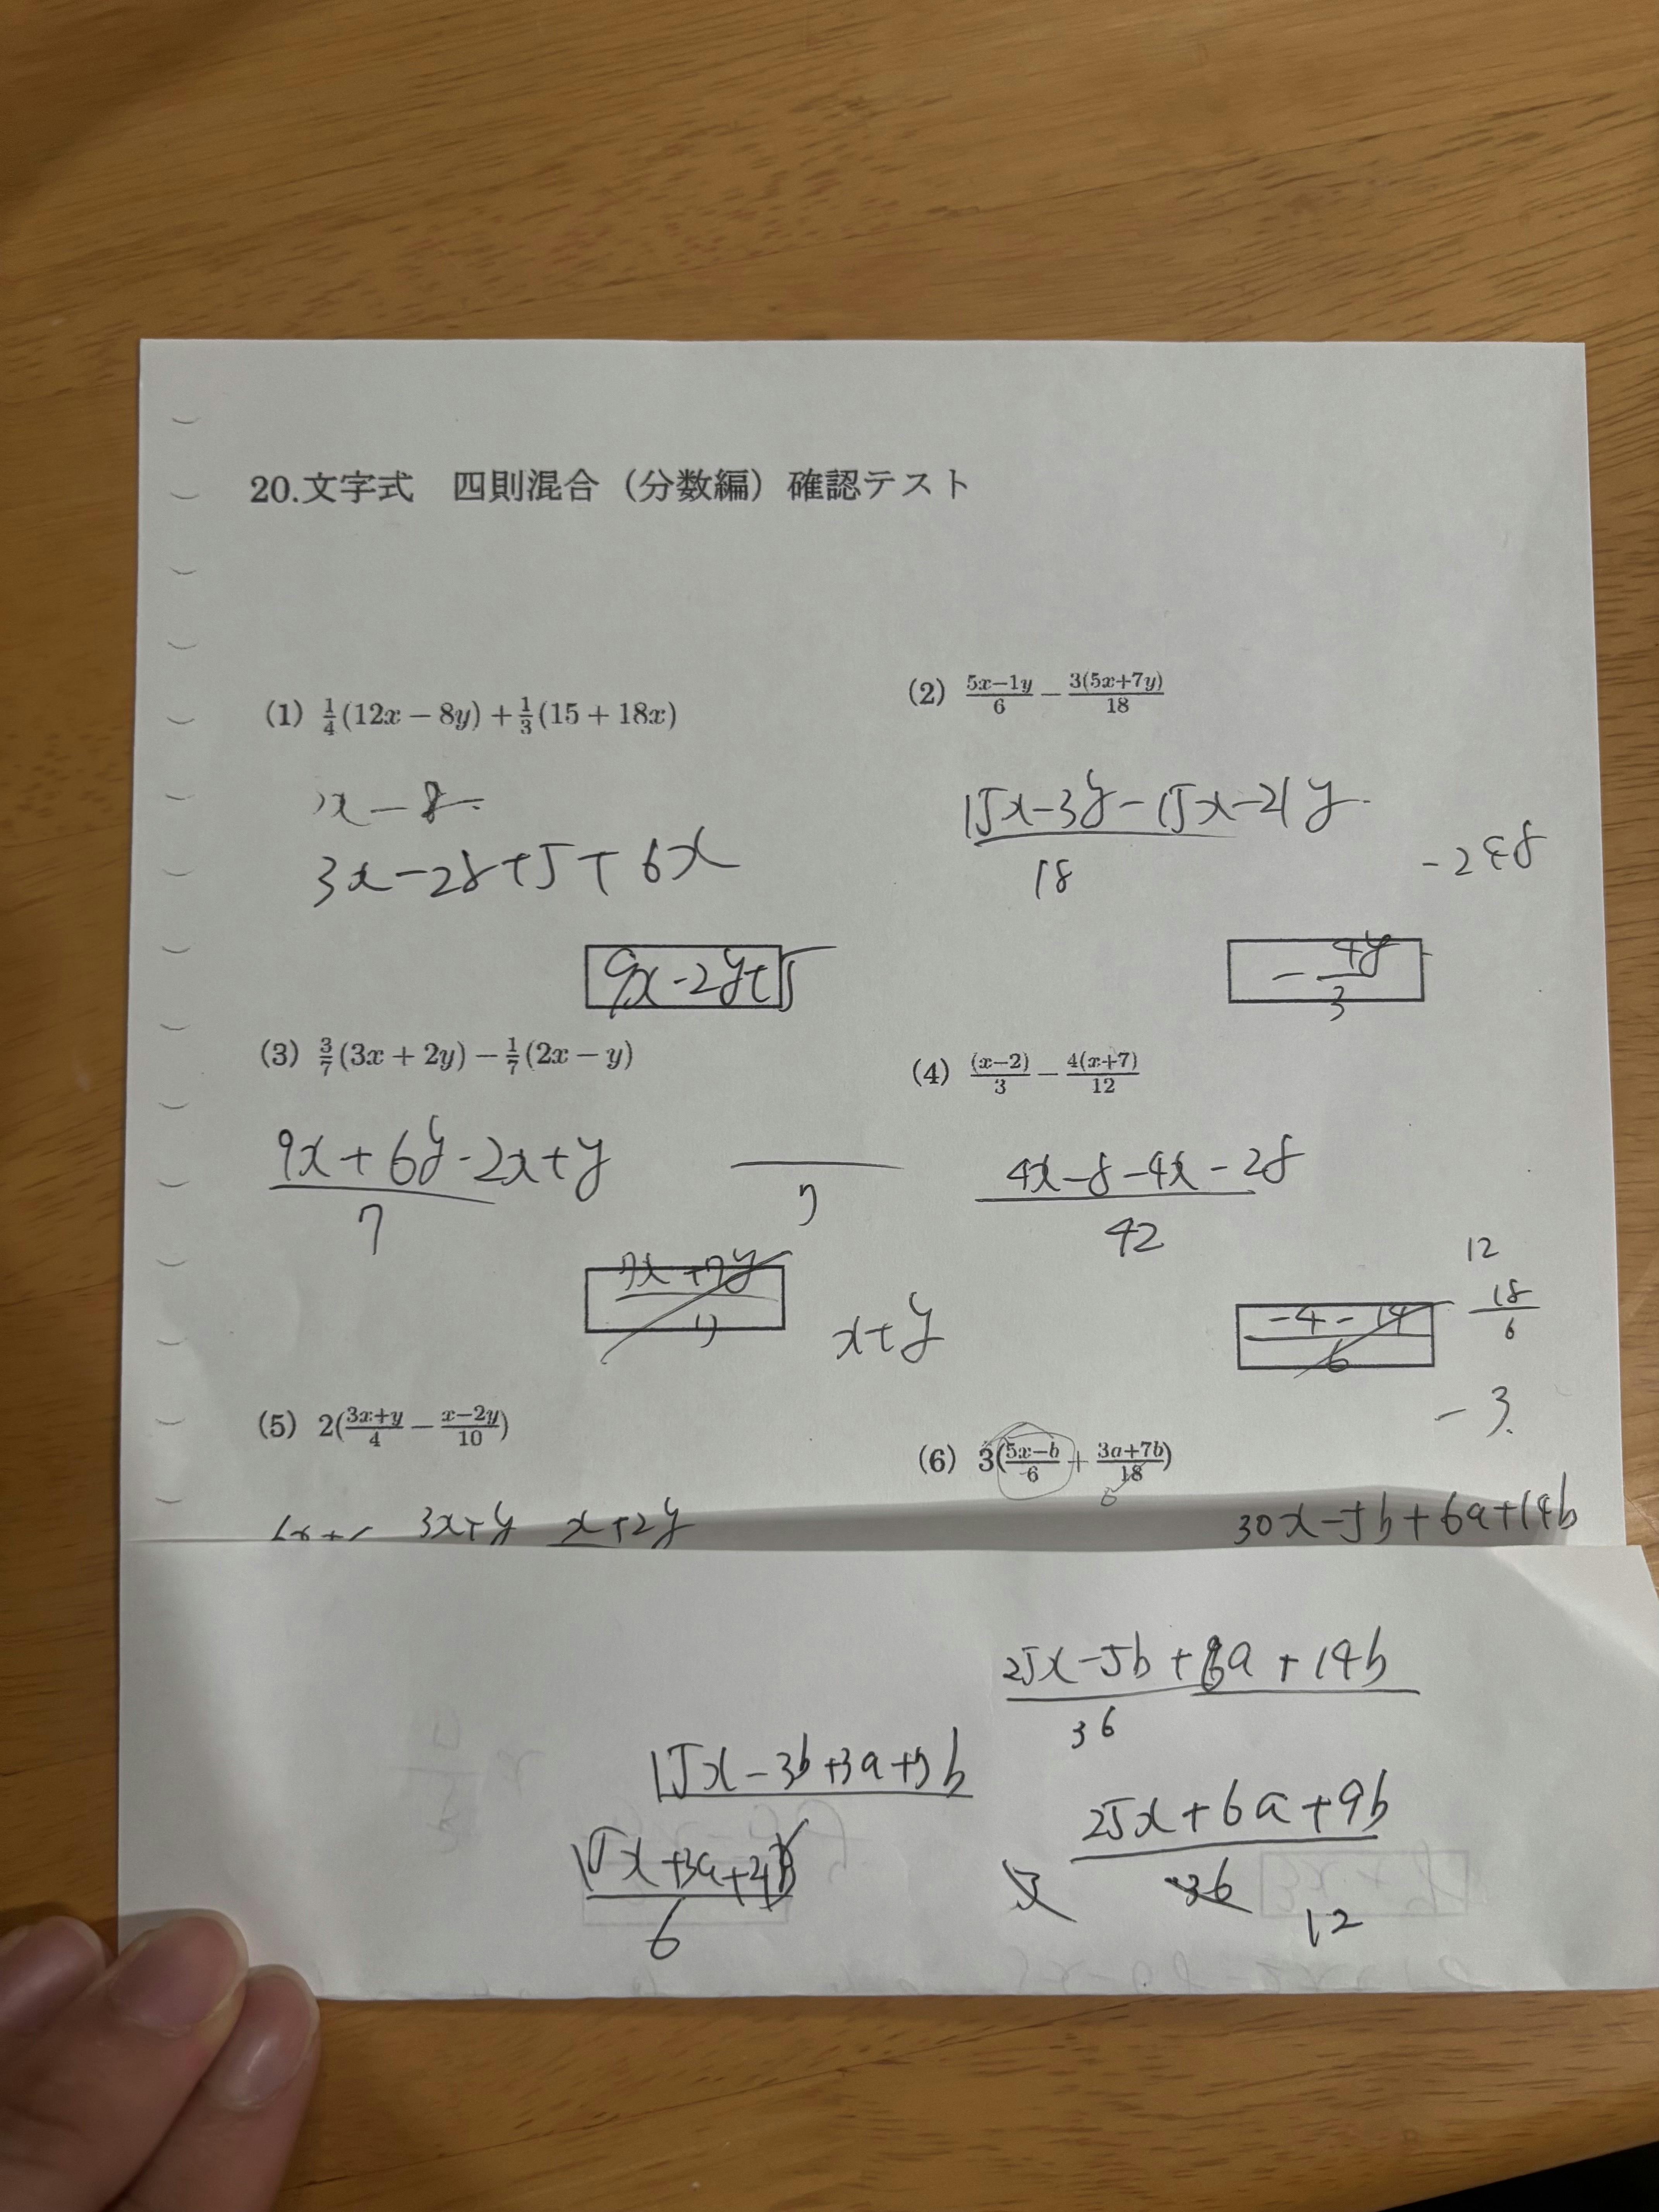 20.文字式　四則混合（分数編）確認テスト
(1) 1/4(12x − 8y) + 1/3(15 + 18x)
x − 8
3x − 2y + 5 + 6x
9x − 2y + 5
(2) 5x−1y/6 − 3(5x+7y)/18
15x − 3y − 15x − 21y
18
− 4y/3
(3) 3/7(3x + 2y) − 1/7(2x − y)
9x + 6y − 2x + y
7
7
7x + 7y
7
x + y
(4) (x−2)/3 − 4(x+7)/12
4x − 8 − 4x − 28
42
12
18
6
−4 − 14
6
− 3
(5) 2(3x+y/4 − x−2y/10)
3x + y x + 2y
(6) 3(5x−b/6 + 3a+7b/18)
6
30x − 5b + 6a + 14b
25x − 5b + 6a + 14b
36
15x − 3b + 3a + 7b
25x + 6a + 9b
36
12
15x + 3a + 4b
6
3